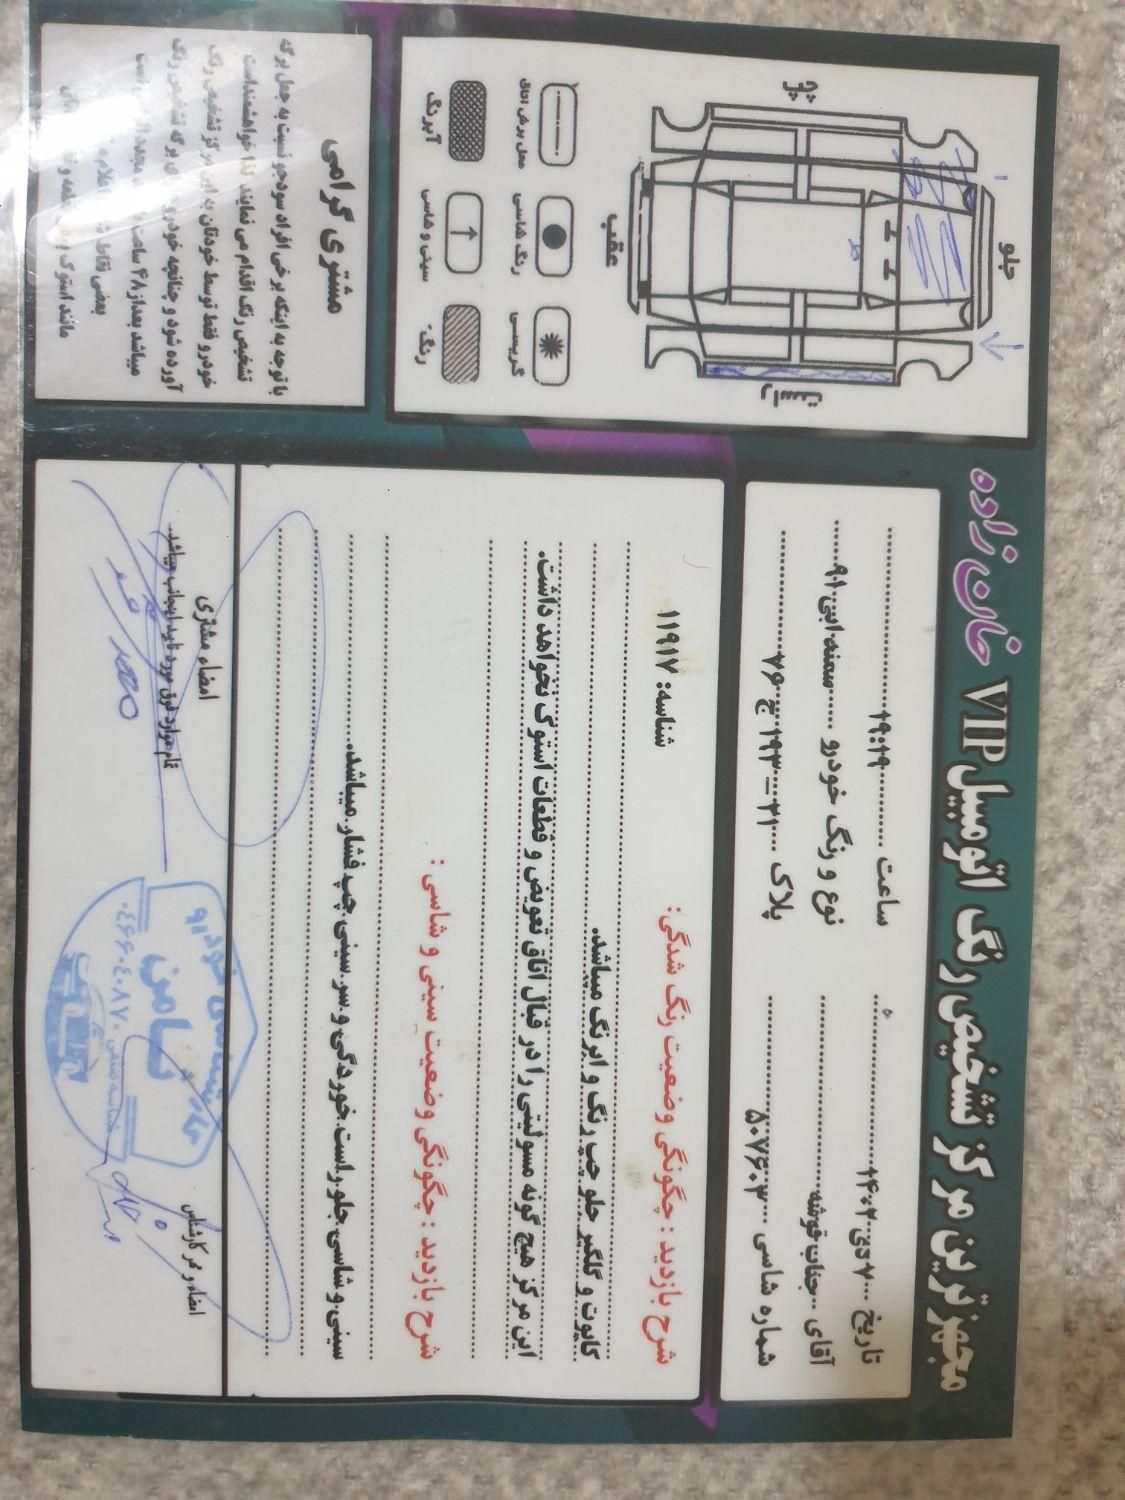 مجهزترین مرکز تشخیص رنگ اتومبیل VIP خان زاده
تاریخ ۷ دی ۱۴۰۲ ساعت ۱۹:۱۹
آقای جناب قوشه نوع و رنگ خودرو سمند ابی ۹۱
شماره شاسی ۵۰۷۶۰۳ پلاک ۲۱ – ۱۹۳ ج ۷۶
شرح بازدید : چگونگی وضعیت رنگ شدگی: شناسه: ۱۱۹۱۷
کاپوت و گلگیر جلو چپ رنگ و ابرنگ میباشد.
این مرکز هیچ گونه مسولیتی را در قبال اتاق تعویض و قطعات استوک نخواهد داشت.
شرح بازدید : چگونگی وضعیت سینی و شاسی :
سینی و شاسی جلو راست خوردگی و سر سینی چپ فشار میباشد.
امضاء و مهر کارشناس
امضاء مشتری
تمام موارد فوق مورد تایید اینجانب میباشد.
کارشناسی خودرو
ثامن
جلو
عقب
چپ
راست
محل برش اتاق
رنگ شاسی
گریسی
آبرنگ
سینی و شاسی
رنگ
مشتری گرامی
با توجه به اینکه برخی افراد سودجو نسبت به جعل برگه
تشخیص رنگ اقدام می نمایند لذا خواهشمند است
خودرو فقط توسط خودتان به این مرکز تشخیص رنگ
آورده شود و چنانچه خودرو برگه تشخیص رنگ
میباشد بعد از ۴۸ ساعت است
بعضی نقاط اعلام
مانند استوک